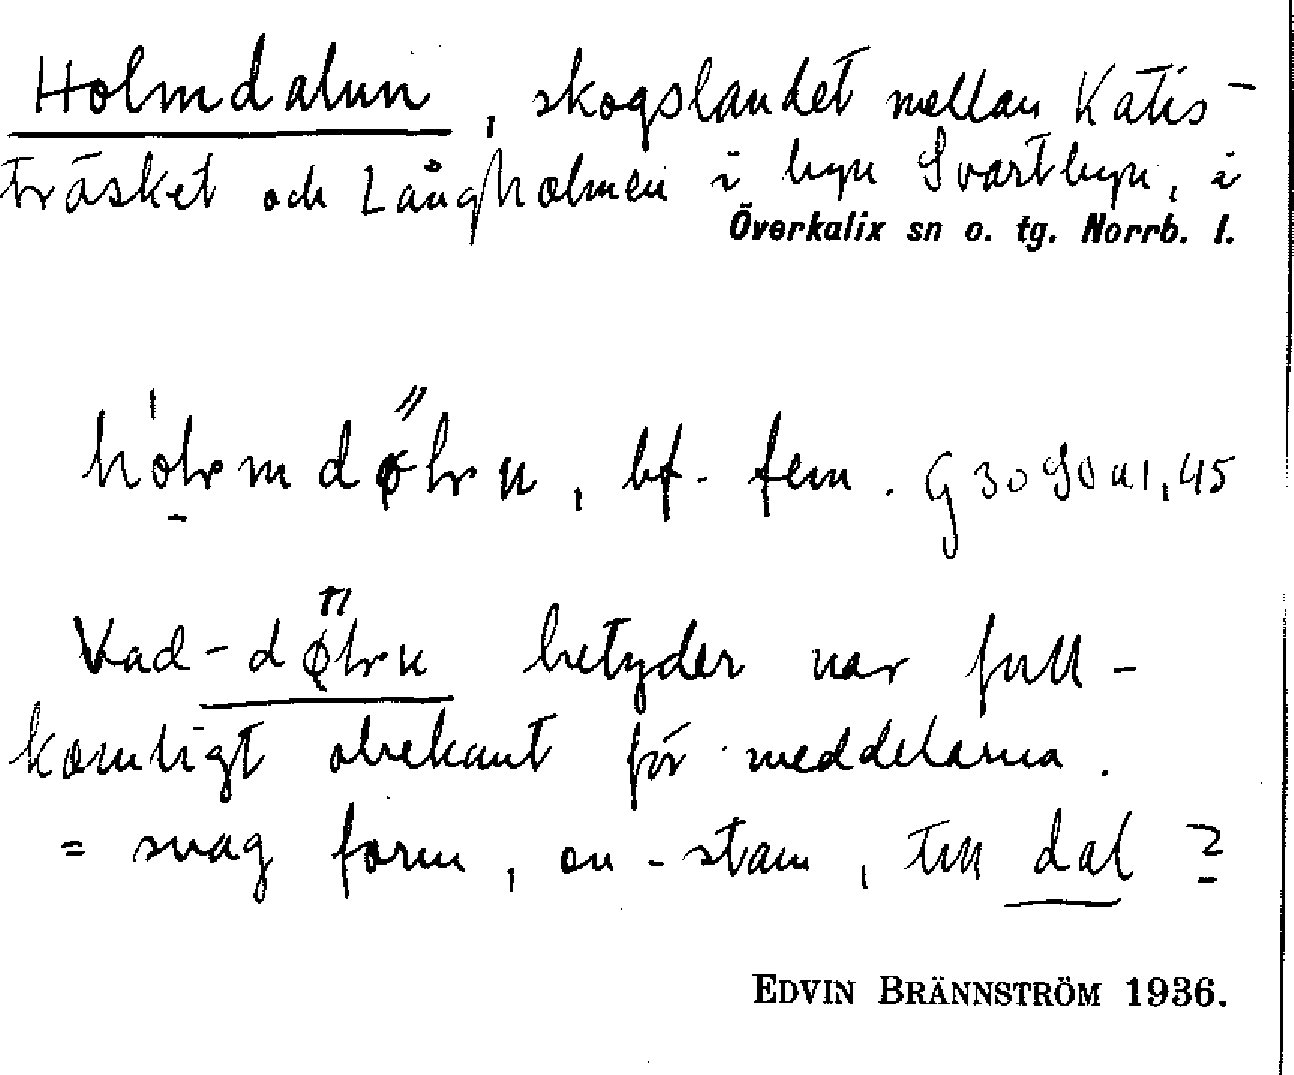 Holmdalun, skogslandet mellan Katis-
träsket och Långholmen i byn Svartbyn, i
Överkalix sn o. tg. Norrb. l.
bf. fem.
Vad betyder var full-
komligt obekant för meddelarna.
= svag form, on-stam, till dal ?
EDVIN BRÄNNSTRÖM 1936.